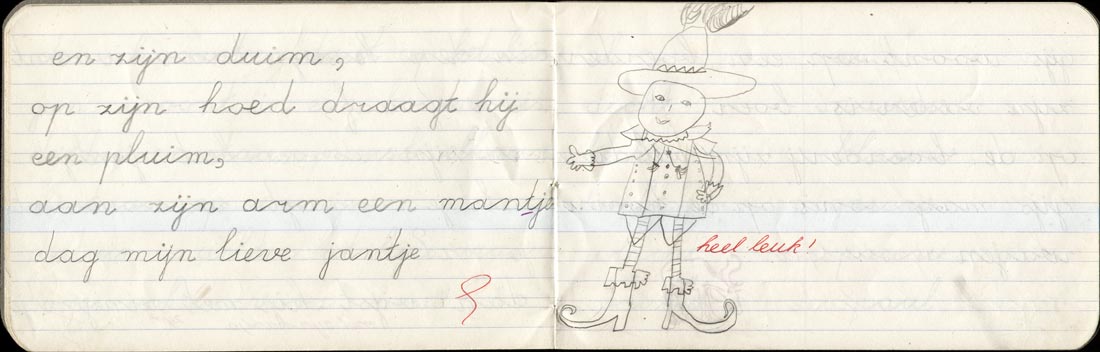 en zijn duim,
op zijn hoed draagt hij
een pluim,
aan zijn arm een mantje
dag mijn lieve jantje
heel leuk!